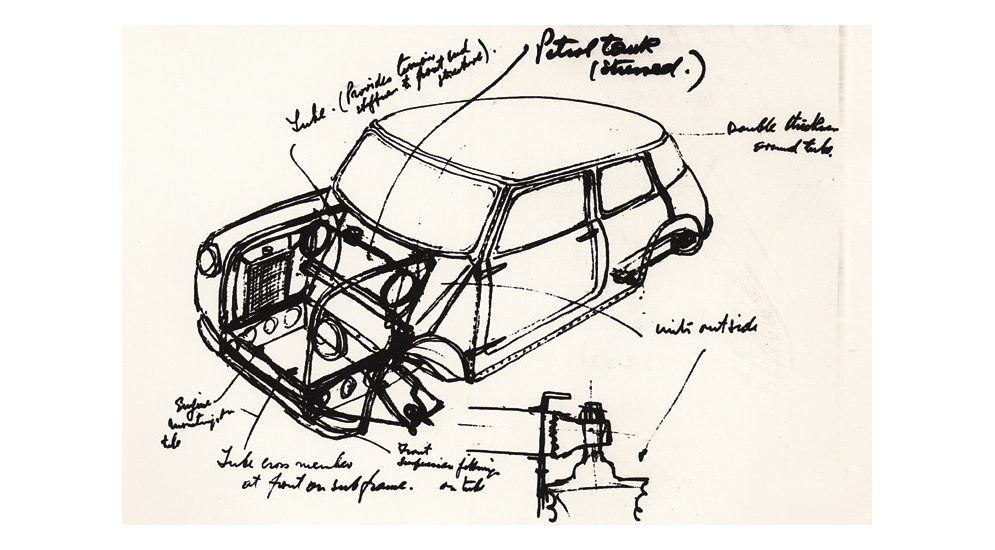 Petrol tank
(stressed.)
Tube. (Provides torsion
stiffness to front end
structure).
Double thickness
around tube.
units outside
Engine
mounting on
tube
Tube cross member
at front on subframe.
Front
suspension
on tub